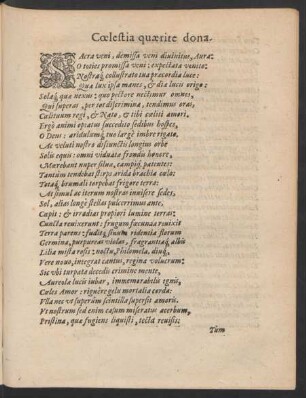 Cœlestia quærite dona.
SAcra veni, demissa veni diuinitus, Aura:
O toties promissa veni: expectata venito:
Nostraq́; collustrato tua præcordia luce:
Qua lux ipsa manes, & dia lucis origo:
Solaq́; qua nexus: quo pectore nectimur omnes,
Qui superas, per tot discrimina, tendimus oras,
Cælituum regi, & Nato, & tibi cœliti amori.
Ergò animi optatus succedito sedibus hospes,
O Deus: aridulumq́; tuo largè imbre rigato.
Ac veluti nostro disiunctus longius orbe
Solis equis: omni viduata frondis honore,
Marcebant nuper siluæ, campiq́; patentes:
Tantùm tendebat stirps arida brachia cælo:
Totaq́; brumali torpebat frigore terra:
At simul ac iterum nostrar inuisere sedes,
Sol, alias longè stellas pulcerrimus ante,
Cupit: & irradias propiori lumine terras:
Cuncta reuixerunt: frugum fœcunda reuixit
Terra parens: fuditq́; suum ridenda florum
Germina, purpureas violas, fragrantiaq́; albis
Lilia mista rosis: noctu, Philomela, diuq́;
Vere nouo, integrat cantus, regina volucrum:
Sic vbi turpato decedis crimine mente,
Aureola lucis iubar, immemorabilis ignis,
Cœles Amor: riguêre gelu mortalia corda:
Vlla nec vt superùm scintilla superfit amoris.
Vt nostrum sed enim casum miseratus acerbum,
Pristina, quæ fugiens liquisti, tecta reuisis:
Tùm